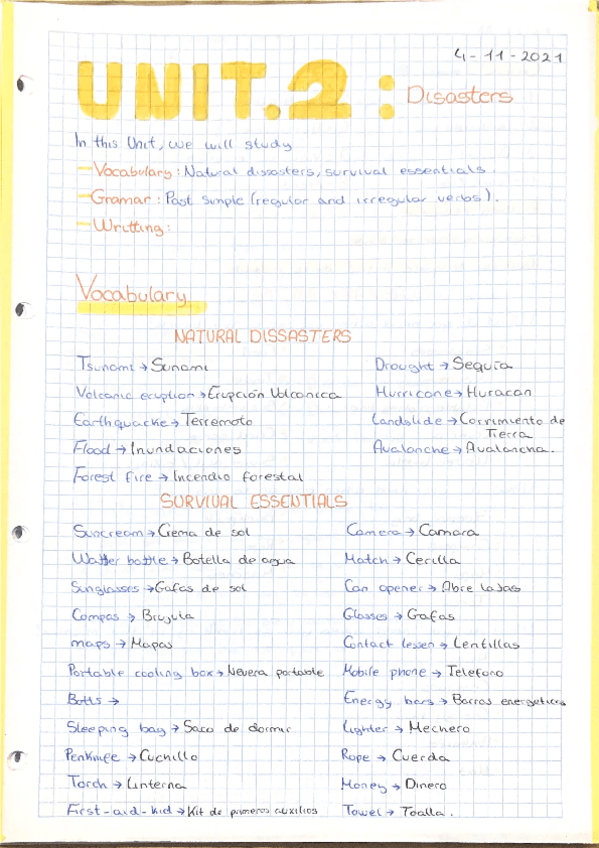 4-11-2021
UNIT.2: Disasters
In this Unit, we will study
- Vocabulary: Natural dissasters, survival essentials.
- Gramar: Past simple (regular and irregular verbs).
- Writting:
Vocabulary
NATURAL DISSASTERS
Tsunami → Sunami
Volcanic eruption → Erupción Volcanica
Earthquacke → Terremoto
Flood → Inundaciones
Forest fire → Incendio forestal
Drought → Sequía
Hurricane → Huracan
Landslide → Corrimiento de
Tierra
Avalanche → Avalancha.
SURVIVAL ESSENTIALS
Suncream → Crema de sol
Watter bottle → Botella de agua
Sunglasses → Gafas de sol
Compas → Brujula
maps → Mapas
Portable cooling box → Nevera portable
Botts →
Sleeping bag → Saco de dormir
Penkinfe → Cuchillo
Torch → Linterna
First-aid-kid → Kit de primeros auxilios
Camera → Camara
Match → Cerilla
Can opener → Abre latas
Glasses → Gafas
Contact lessen → Lentillas
Mobile phone → Telefono
Energy bars → Barras energeticas
Lighter → Mechero
Rope → Cuerda
Money → Dinero
Towel → Toalla.